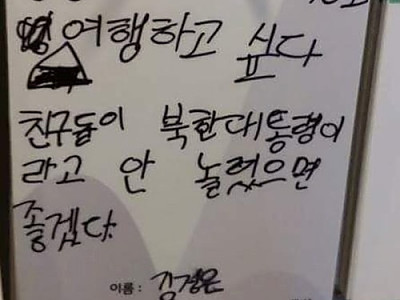 여행하고 싶다
친구들이 북한대통령이
라고 안 놀렸으면
좋겠다.
이름 : 김정은